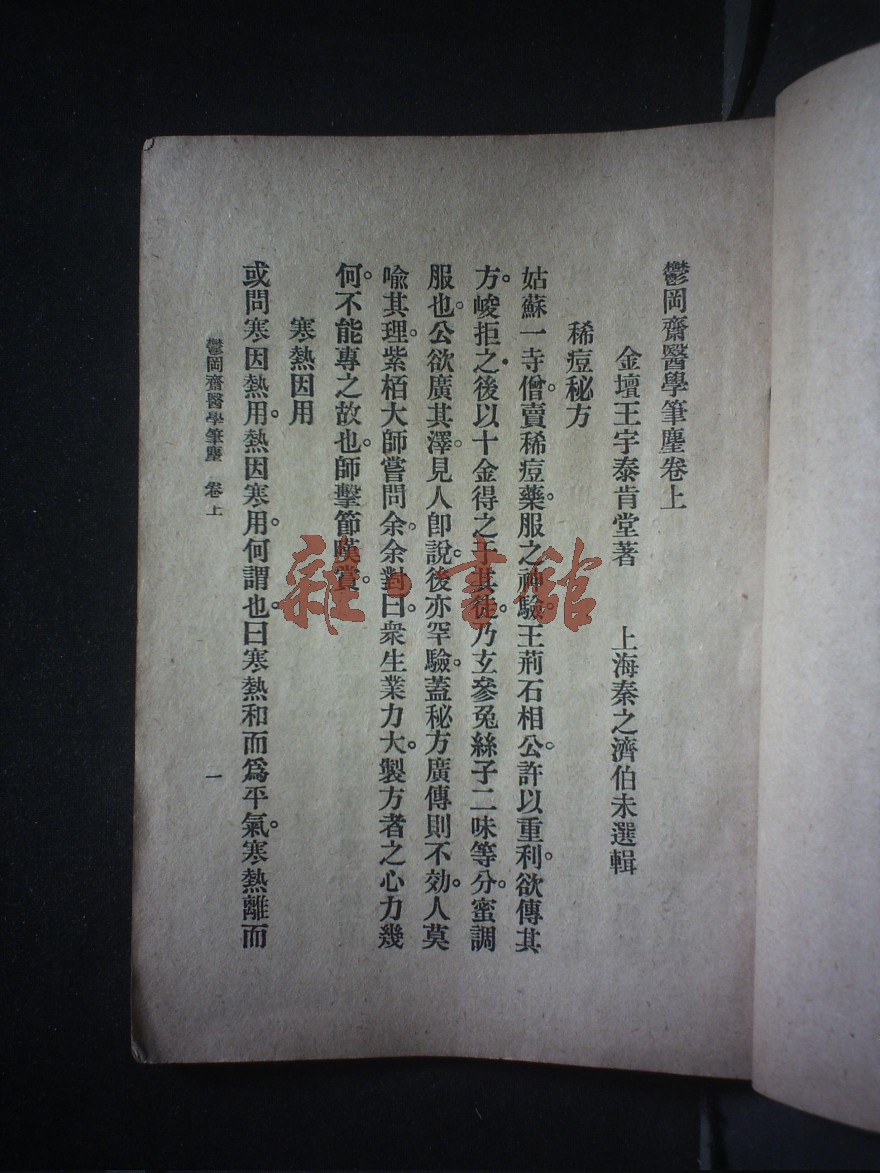 鬱岡齋醫學筆麈卷上
金壇王宇泰肯堂著　上海秦之濟伯未選輯
稀痘秘方
姑蘇一寺僧。賣稀痘藥。服之神驗。王荊石相公。許以重利。欲傳其
方。峻拒之。後以十金得之于其徒。乃玄參兔絲子二味等分。蜜調
服也。公欲廣其澤。見人卽說。後亦罕驗。蓋秘方廣傳則不効。人莫
喩其理。紫栢大師嘗問余。余對曰。衆生業力大。製方者之心力幾
何。不能專之故也。師擊節嘆賞。
寒熱因用
或問寒因熱用。熱因寒用。何謂也。曰寒熱和而爲平氣。寒熱離而
鬱岡齋醫學筆麈　卷上
一
雜書館